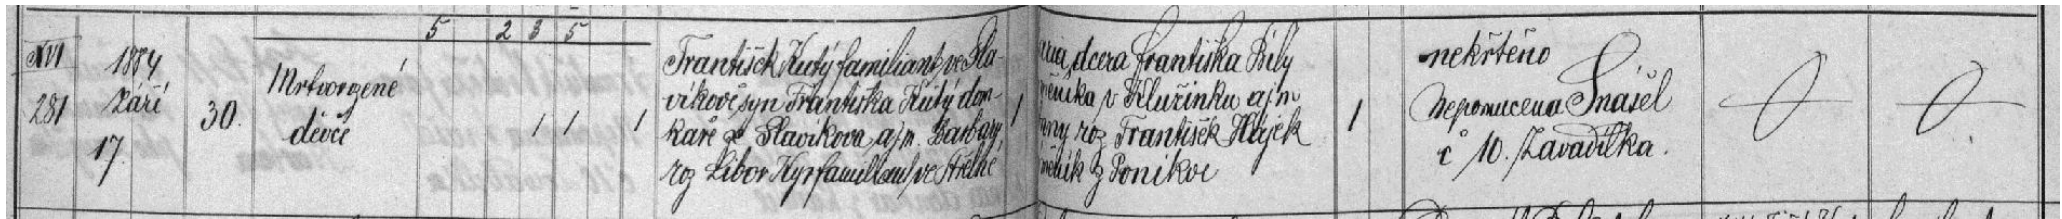 5 2 3 5
XVI 1884
281 Září
17. 30. Mrtvorozené
děvče 1 1 1
František Kutý familiant, ve Sla-
víkově, syn Františka Kutý dom-
kaře ze Slavíkova, a jm. Barbary,
roz Libor Kyr familiant ve
dcera Františka Bílý
v a jm
roz František Hájek
z Ponikve
1 1
nekřtěno
Nepomucena Snášel
č 10. Zavadilka.